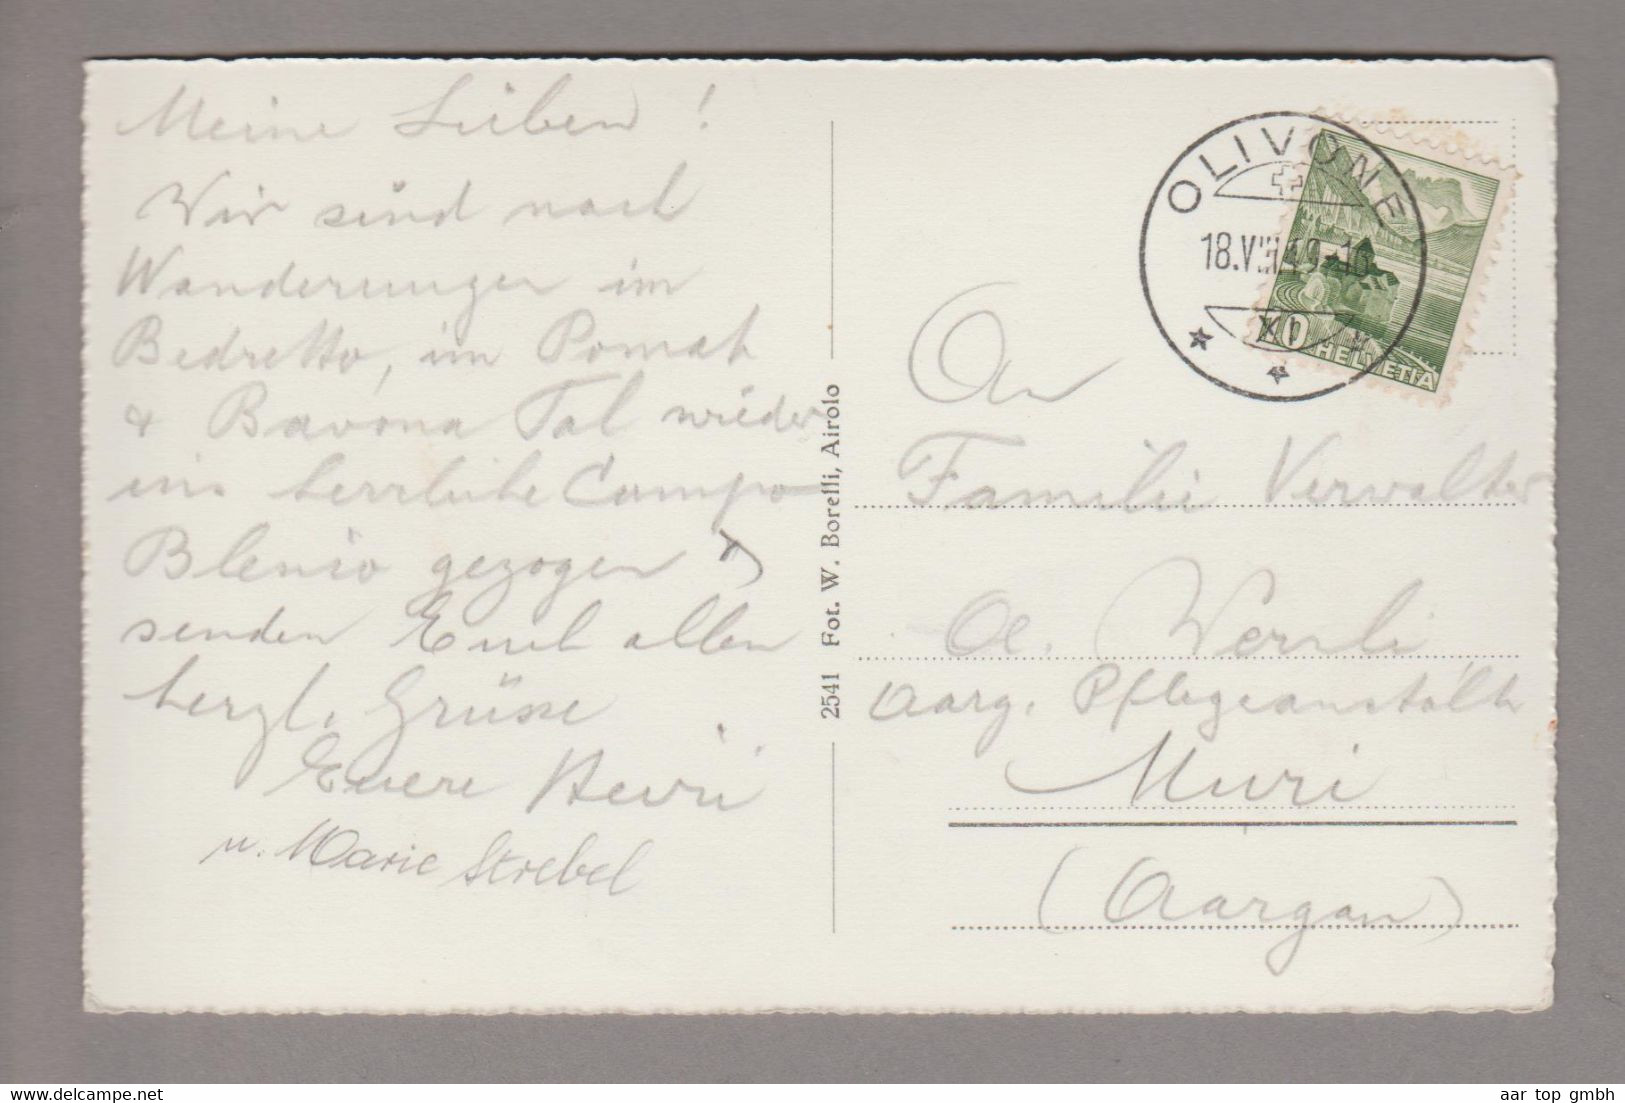 Meine Lieben !
Wir sind nach
Wanderungen im
Bedretto, im Pomat
& Bavona Tal wieder
ins herrliche Campo
Blenio gezogen &
senden Euch allen
herzl. Grüsse
Euere Heiri
u. Marie Strebel
2541 Fot. W. Borelli, Airolo
OLIVONE
18.VIII.49-16
10
HELVETIA
An
Familie Verwalter
A. Wernli
aarg. Pflegeanstalt
Muri
(Aargau)
aar top gmbh